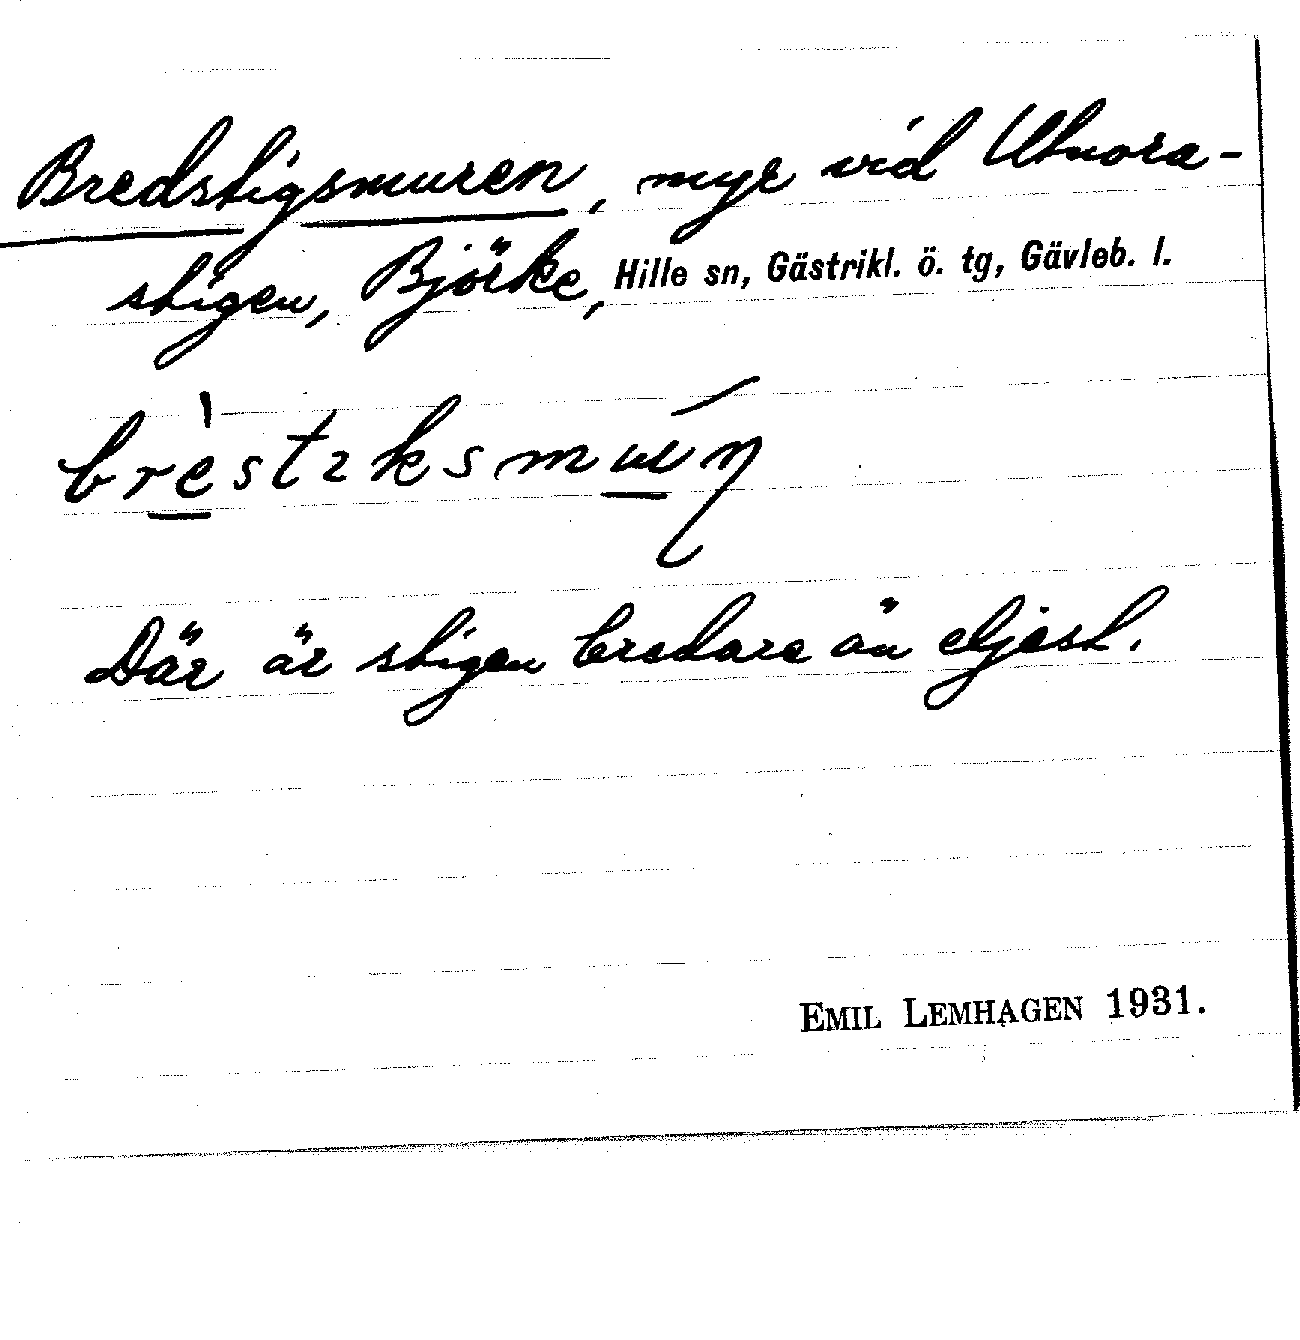 Bredstigsmuren, myr vid Utnora-
stigen, Björke, Hille sn, Gästrikl. ö. tg, Gävleb. l.
Där är stigen bredare än eljest.
EMIL LEMHAGEN 1931.